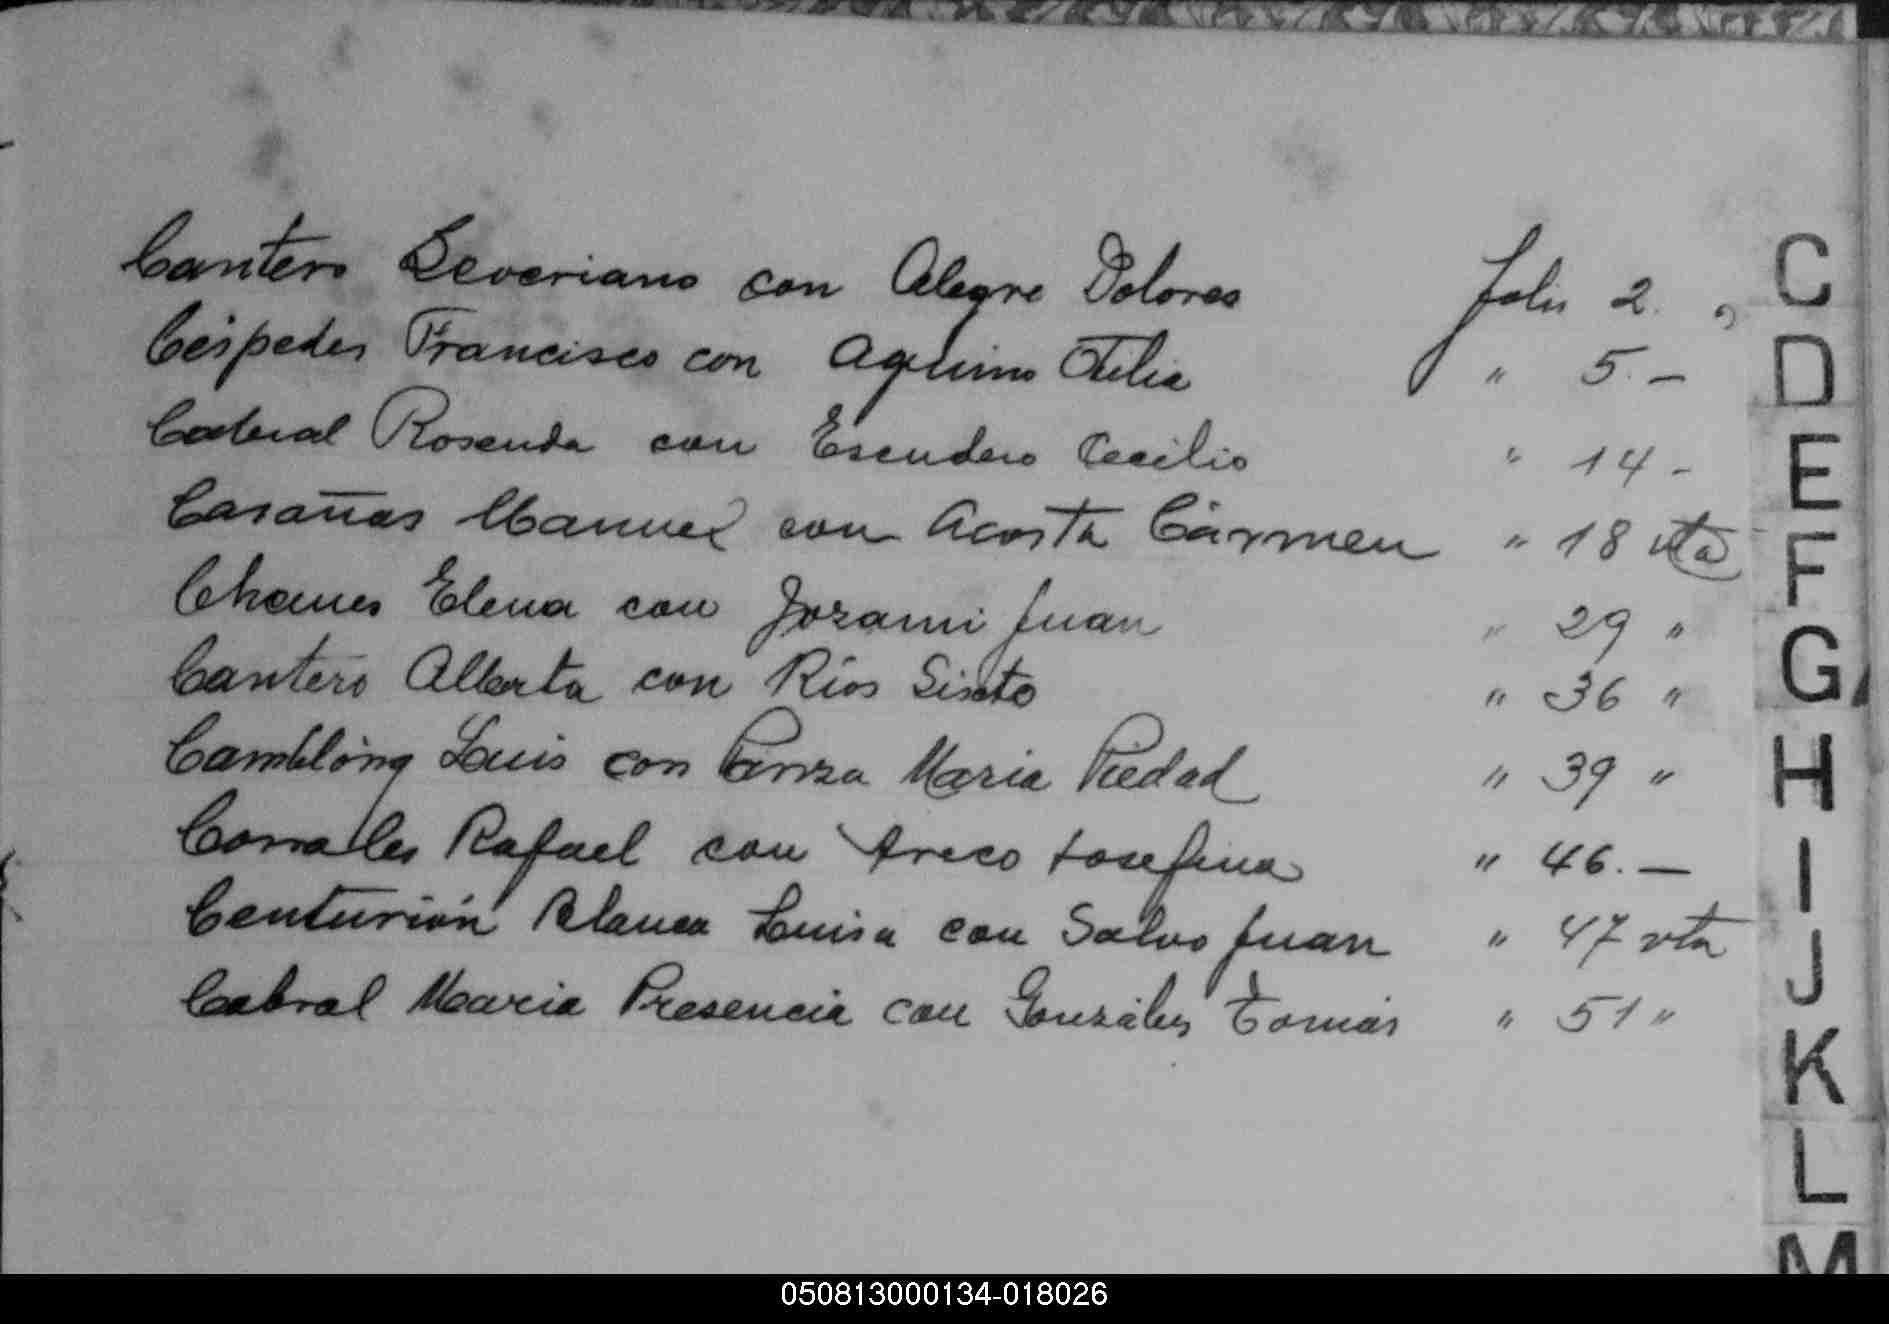 Cantero Severiano con Alegre Dolores Folio 2. "
Céspedes Francisco con Aquino Otilia " 5. —
Cabral Rosenda con Escudero Cecilio " 14 -
Casañas Manuel con Acosta Cármen " 18 vta
Elena con Jozami Juan " 29 "
Cantero Alberta con Ríos Sixto " 36 "
Camblong Luis con María Piedad " 39 "
Corrales Rafael con Areco Josefina " 46. —
Centurión Blanca Luisa con Salvo Juan " 47 vta
Cabral Maria Presencia con Gonzáles Tomás " 51 "
C
D
E
F
G
H
I
J
K
L
M
050813000134-018026